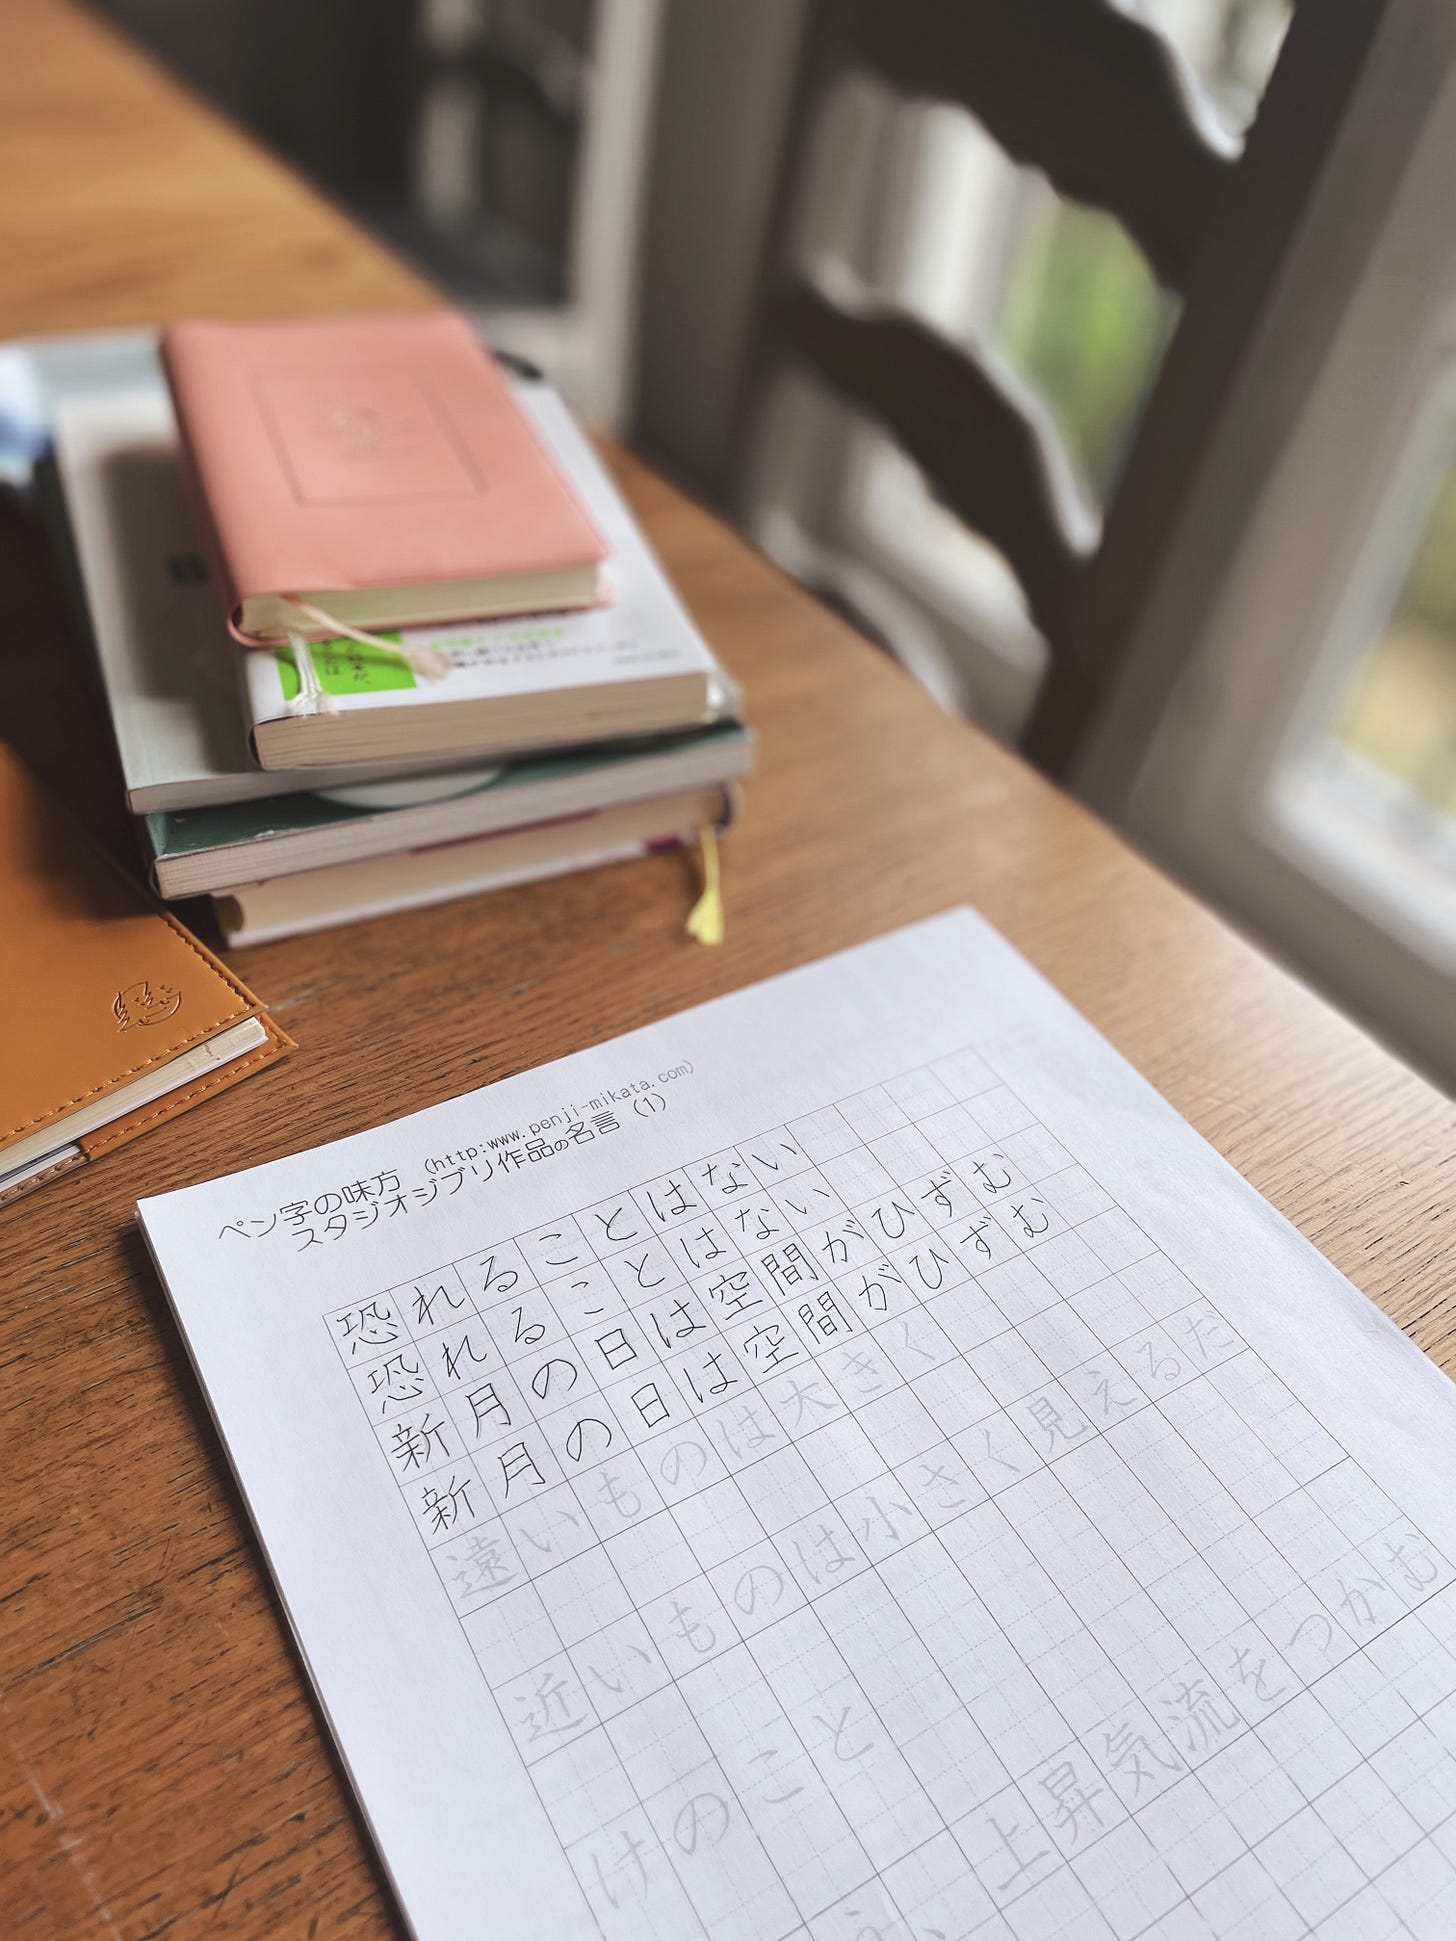 ペン字の味方 (http:www.penji-mikata.com)
スタジオジブリ作品の名言(1)
恐れることはない
恐れることはない
新月の日は空間がひずむ
新月の日は空間がひずむ
遠いものは大きく
近いものは小さく見えるだ
けのこと
上昇気流をつかむ